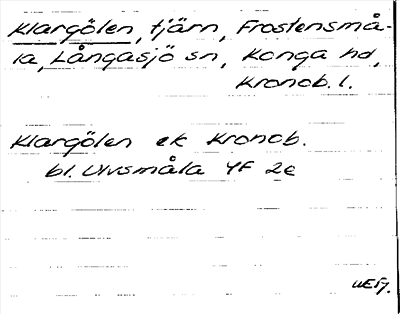 Klargölen, tjärn, Frostensmå-
la, Långasjö sn, Konga hd,
Kronob. l.
Klargölen ek Kronob.
bl. Ulvsmåla 4F 2e